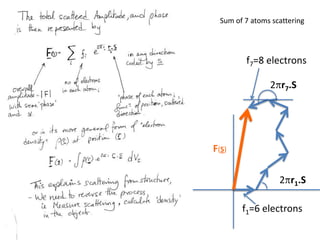 The total scattered Amplitude, and phase
is then represented by
F(S) = Σ fj e^2πi rj.S in any direction
coded by S
overall
amplitude = |F|
with some "phase"
and α.
no of electrons
in each atom;
"phase of each atom;
of position, scattered
direction.
or in its more general form of "electron
density" ρ(r) at position (r)
F(S) = ∫ρ(r) e^2πi r.S dVr
- This explains scattering from structure,
- We need to reverse the process,
ie Measure scattering, calculate 'density'
in the object.
Sum of 7 atoms scattering
f7=8 electrons
2πr7.S
F(S)
2πr1.S
f1=6 electrons